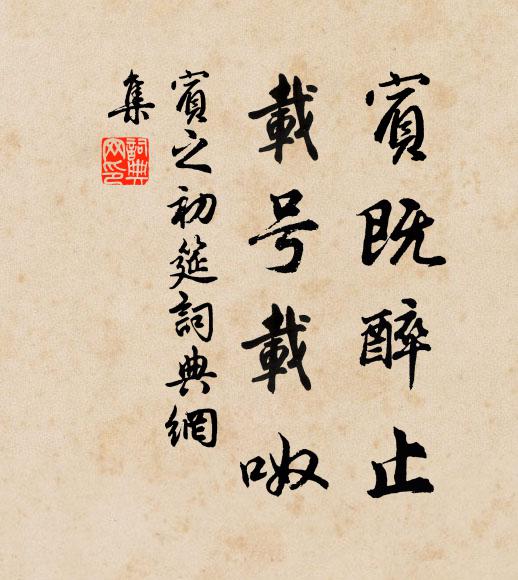 賓既醉止
載号載呶
賓之初筵詞典網
集
詞典網印